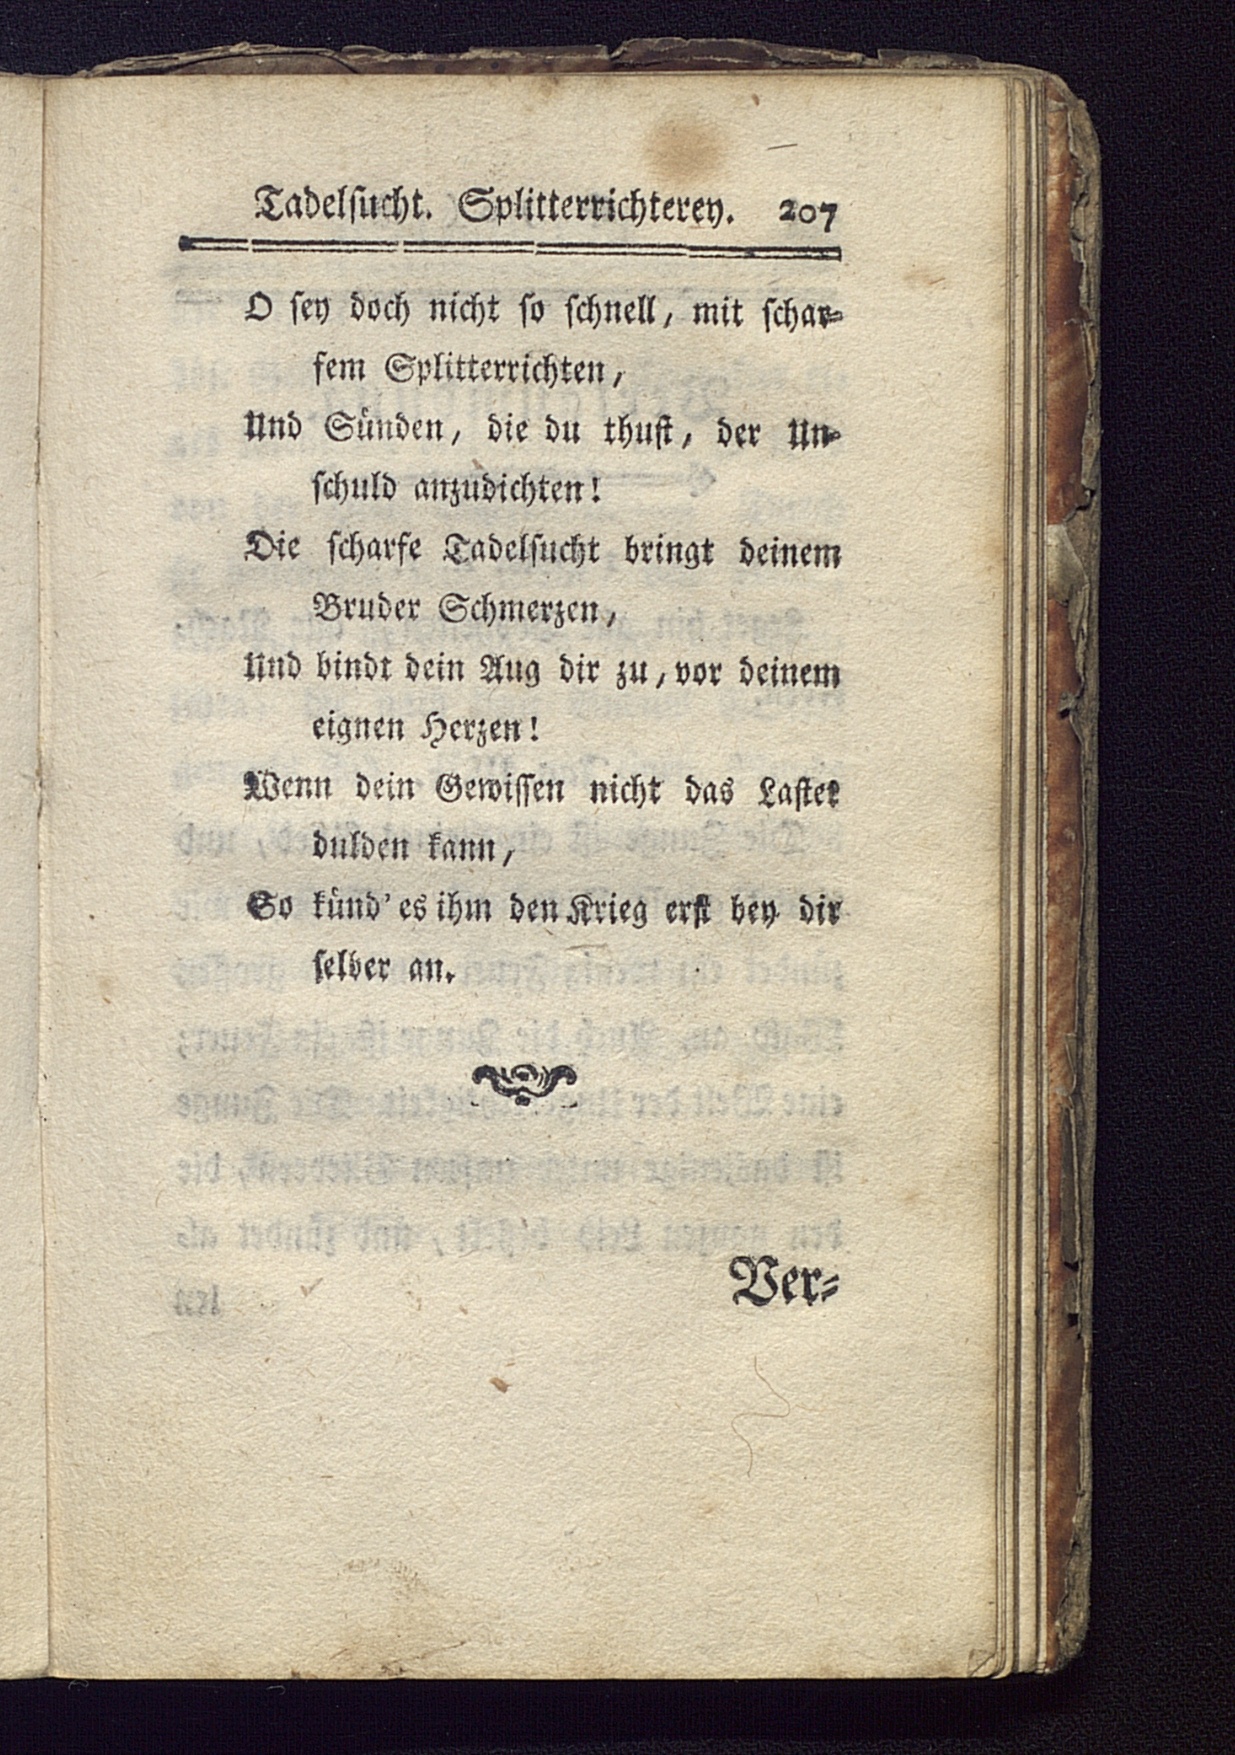 Tadelſucht. Splitterrichterey. 207
O ſey doch nicht ſo ſchnell, mit ſchar-
fem Splitterrichten,
Und Sünden, die du thuſt, der Un-
ſchuld anzudichten!
Die ſcharfe Tadelſucht bringt deinem
Bruder Schmerzen,
Und bindt dein Aug dir zu, vor deinem
eignen Herzen!
Wenn dein Gewiſſen nicht das Laſter
dulden kann,
So künd' es ihm den Krieg erſt bey dir
ſelber an.
Ver-